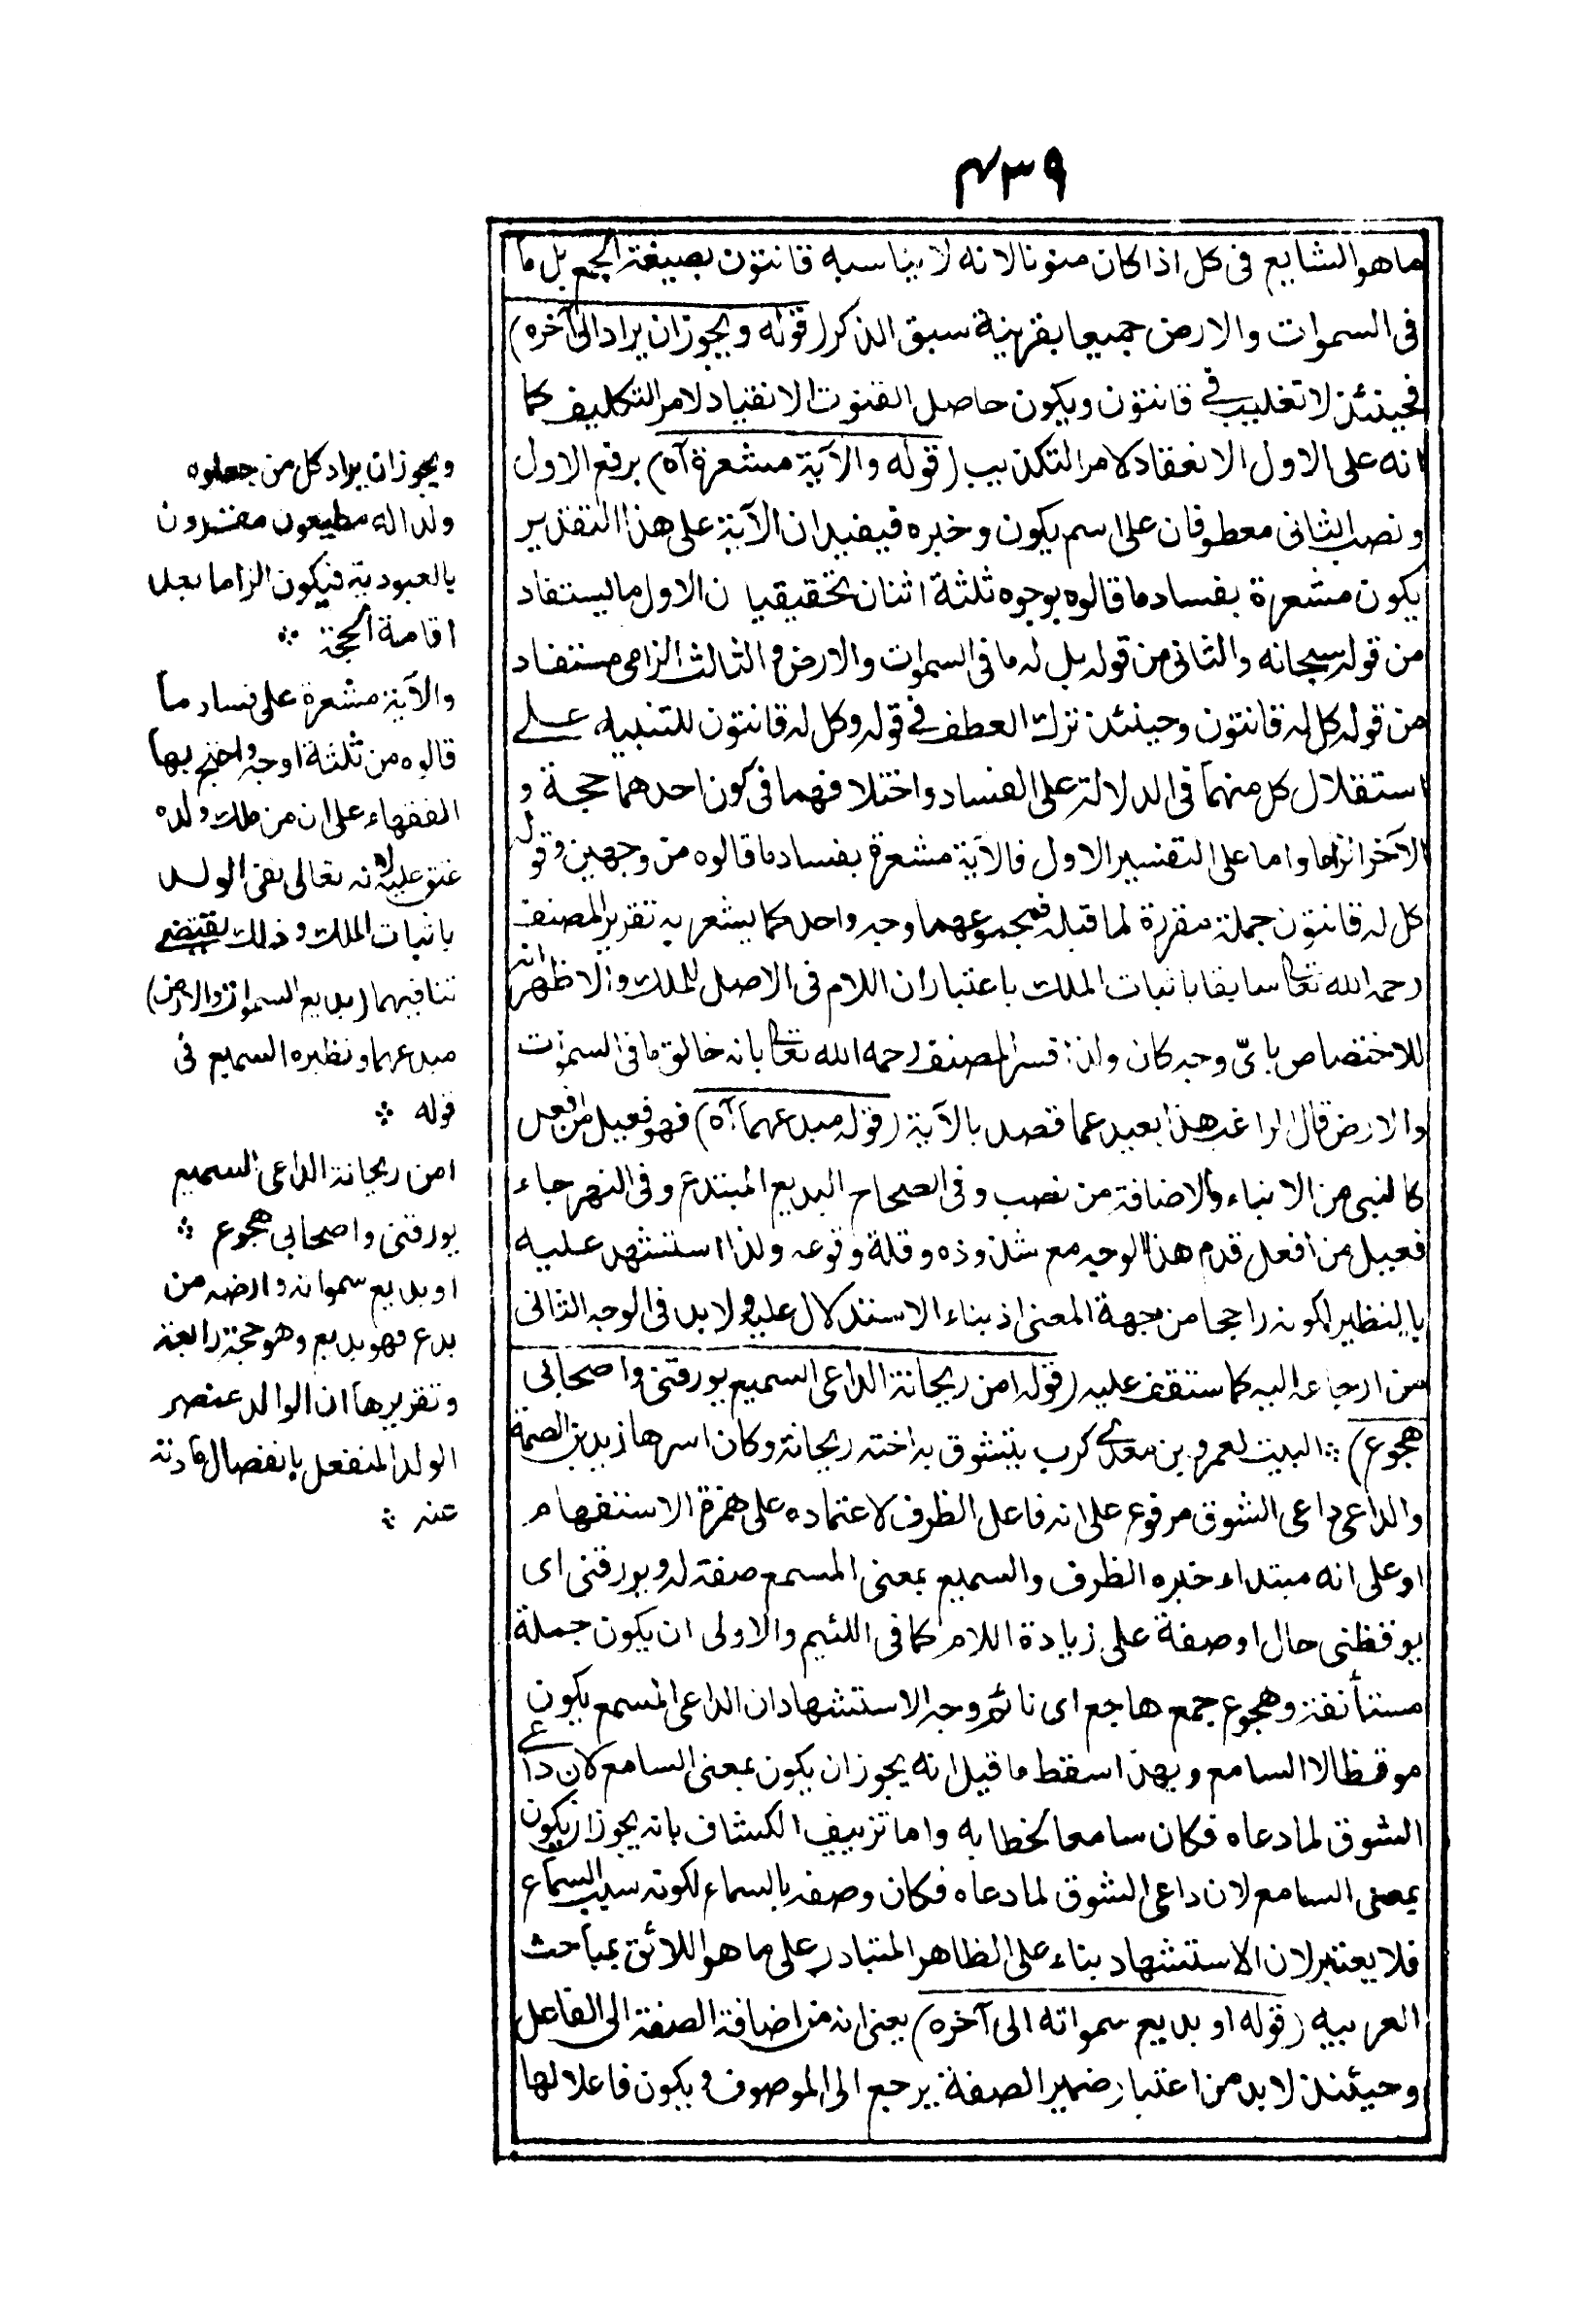 ۴۳۹
ما هو الشايع فى كل اذا كان منونا لانه لا يناسبه قانتون بصيغة الجمع بل ما
فى السموات والارض جميعا بقرينة سبق الذكر (قوله ويجوز ان يراد الى آخره)
فحينئذ لا تغليب فى قانتون ويكون حاصل القنوت الانقياد لامر التكليف كما
انه على الاول الانعقاد لامر التكذيب (قوله والآية مشعرة آه) برفع الاول
ونصب الثانى معطوفان على اسم يكون وخبره فيفيد ان الآية على هذا التقدير
يكون مشعرة بفساد ما قالوه بوجوه ثلثة اثنان تحقيقيان الاول ما يستفاد
من قوله سبحانه والثانى من قوله بل له ما فى السموات والارض والثالث الزامى مستفاد
من قوله كل له قانتون وحينئذ ترك العطف فى قوله وكل له قانتون للتنبيه على
استقلال كل منهما فى الدلالة على الفساد واختلافهما فى كون احدهما حجة و
الآخر الزاما واما على التفسير الاول فالآية مشعرة بفساد ما قالوه من وجهين وقوله
كل له قانتون جملة مقررة لما قبله فمجموعهما وجه واحد كما يشعر به تقرير المصنف
رحمه الله تعالى سابقا باثبات الملك باعتبار ان اللام فى الاصل للملك والاظهر انه
للاختصاص باىّ وجه كان ولذا فسر المصنف رحمه الله تعالى بانه خالق ما فى السموات
والارض قال الراغب هذا بعيد عما قصد بالآية (قوله مبدعهما آه) فهو فعيل من افعل
كالنبى من الانباء والاضافة من نصب وفى الصحاح البديع المبتدع وفى النهر جاء
فعيل من افعل قدم هذا الوجيه مع شذوذه وقلة وقوعه ولذا استشهد عليه
بالنظير لكونه راجحا من جهة المعنى اذ بناء الاستدلال عليه ولا بد فى الوجه الثانى
من ارجاعه اليه كما ستقف عليه (قوله امن ريحانة الداعى السميع يورقنى واصحابى
هجوع) ؞ البيت لعمرو بن معدى كرب يتشوق به اخته ريحانة وكان اسرها زيد بن الصمة
والداعى داعى الشوق مرفوع على انه فاعل الظرف لاعتماده على همزة الاستفهام
او على انه مبتداء خبره الظرف والسميع بمعنى المسمع صفة له ويورقنى اى
يوقظنى حال او صفة على زيادة اللام كما فى اللئيم والاولى ان يكون جملة
مستأنفة وهجوع جمع هاجع اى نائم وجه الاستشهاد ان الداعى المسمع يكون
موقظا لا السامع وبهذا سقط ما قيل انه يجوز ان يكون بمعنى السامع لان داعى
الشوق لما دعاه فكان سامعا لخطابه واما تزييف الكشاف بانه يجوز ان يكون
بمعنى السامع لان داعى الشوق لما دعاه فكان وصفه بالسماء لكونه سبب السماع
فلا يعتبر لان الاستشهاد بناء على الظاهر المتبادر على ما هو اللائق بمباحث
العربيه (قوله او بديع سمواته الى آخره) يعنى انه من اضافة الصفة الى الفاعل
وحيئنذ لا بد من اعتبار ضمير الصفة يرجع الى الموصوف ويكون فاعلا لها
ويجوز ان يراد كل من جعلوه
ولدا له مطيعون مقرون
بالعبودية فيكون الزاما بعد
اقامة الحجة ؞
والآية مشعرة على فساد ما
قالوه من ثلثة اوجه واحتج بها
الفقهاء على ان من ملك ولده
عتق عليه لانه تعالى نفى الولد
باثبات الملك وذلك يقتضى
تنافيهما (بديع السموات والارض)
مبدعهما ونظيره السميع فى
قوله ؞
امن ريحانة الداعى السميع
يورقنى واصحابى هجوع ؞
او بديع سمواته وارضه من
بدع فهو بديع وهو حجة رابعة
وتقريرها ان الوالد عنصر
الولد المنفعل بانفصال مادته
عنه ؞